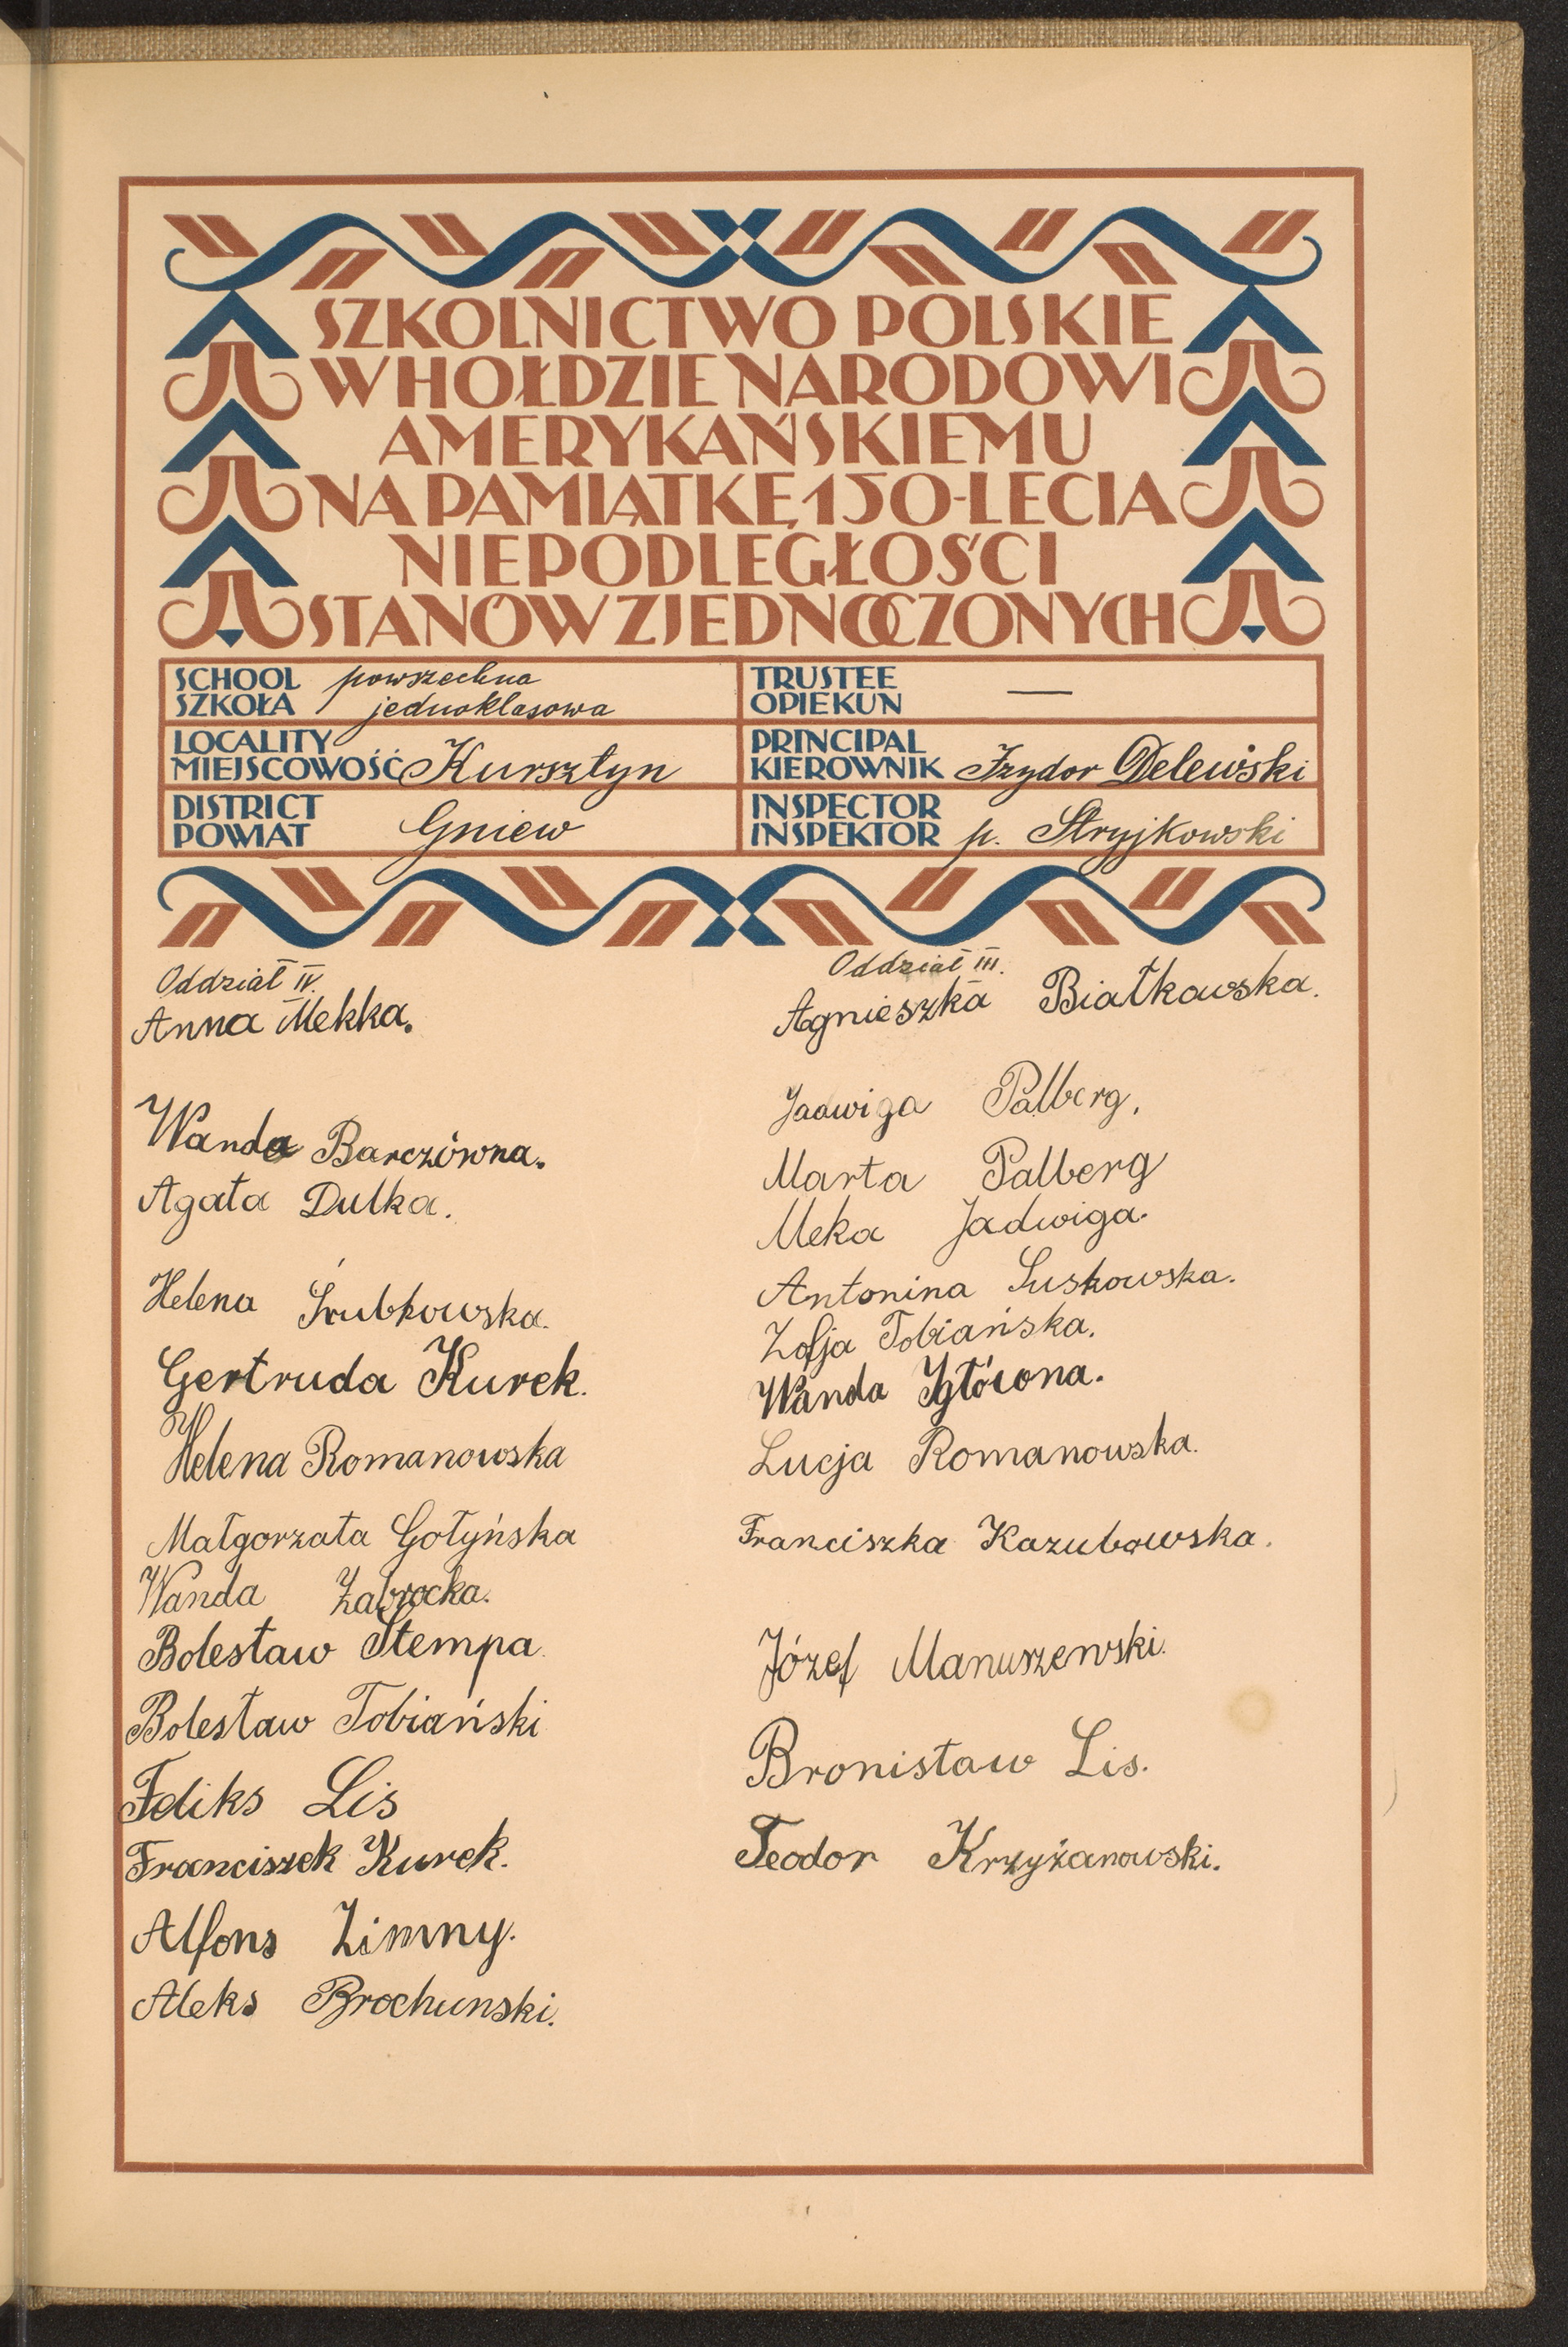 SZKOLNICTWO POLSKIE
W HOŁDZIE NARODOWI
AMERYKAŃSKIEMU
NA PAMIĄTKĘ 150-LECIA
NIEPODLEGŁOŚCI
STANÓW ZJEDNOCZONYCH
SCHOOL
SZKOŁA
powszechna
jednoklasowa
TRUSTEE
OPIEKUN
—
LOCALITY
MIEJSCOWOŚĆ Kursztyn
PRINCIPAL
KIEROWNIK Izydor Delewski
DISTRICT
POWIAT Gniew
INSPECTOR
INSPEKTOR p. Stryjkowski
Oddział IV.
Anna Mekka.
Wanda Barczówna.
Agata Dulka.
Helena Śrubkowska.
Gertruda Kurek.
Helena Romanowska
Małgorzata Gołyńska
Wanda Zabrocka.
Bolesław Stempa
Bolesław Tobiański
Feliks Lis
Franciszek Kurek.
Alfons Zimny.
Aleks Brochunski.
Oddział III.
Agnieszka Białkowska.
Jadwiga Palberg.
Marta Palberg
Meka Jadwiga.
Antonina Suskowska.
Zofja Tobiańska.
Wanda
Lucja Romanowska.
Franciszka Kazubowska.
Józef Manuszewski.
Bronisław Lis.
Teodor Krzyżanowski.